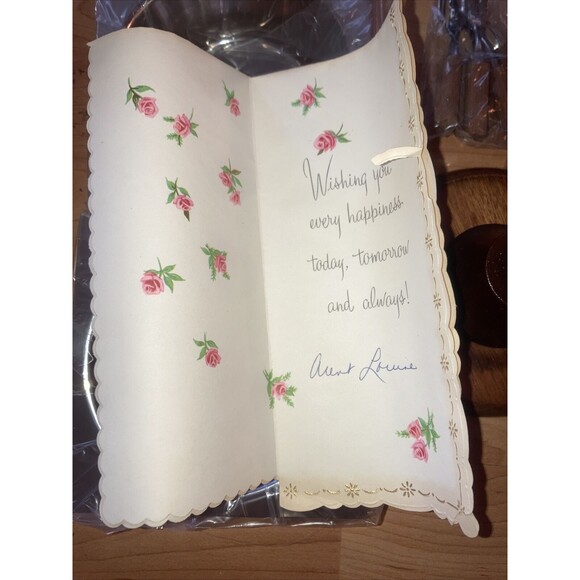 Wishing you
every happiness
today, tomorrow
and always!
Aunt Louise